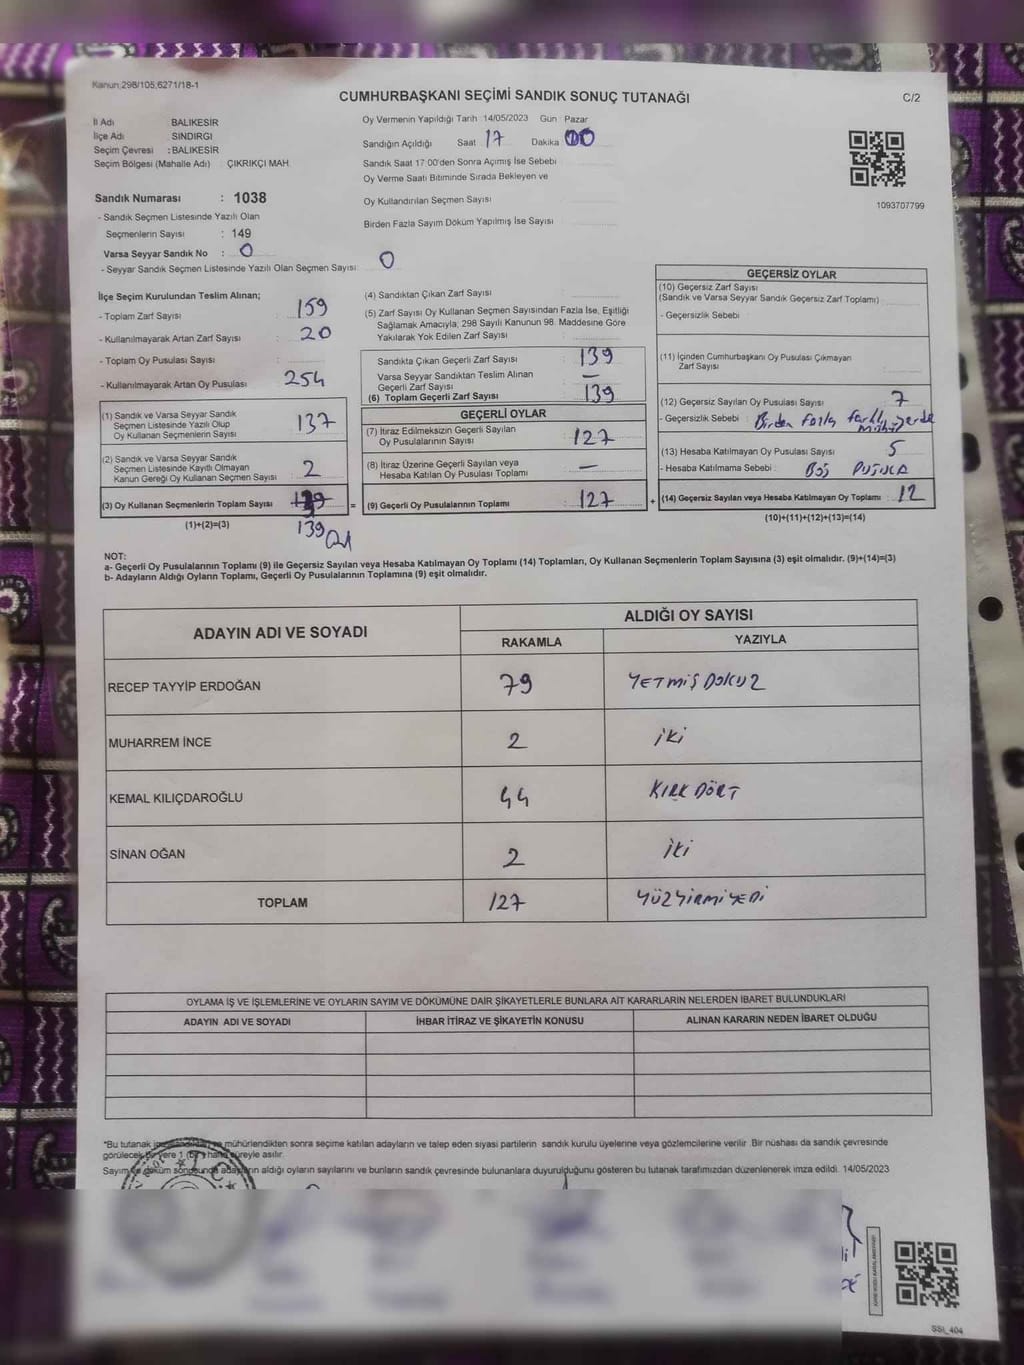 Kanun;298/105,6271/18-1
CUMHURBAŞKANI SEÇİMİ SANDIK SONUÇ TUTANAĞI
C/2
İl Adı BALIKESİR
İlçe Adı SINDIRGI
Seçim Çevresi : BALIKESİR
Seçim Bölgesi (Mahalle Adı) : ÇIKRIKÇI MAH.
Oy Vermenin Yapıldığı Tarih 14/05/2023 Gün : Pazar
Sandığın Açıldığı Saat 17 Dakika 00
Sandık Saat 17:00'den Sonra Açılmış İse Sebebi
Oy Verme Saati Bitiminde Sırada Bekleyen ve
Oy Kullandırılan Seçmen Sayısı
Birden Fazla Sayım Döküm Yapılmış İse Sayısı
1093707799
Sandık Numarası : 1038
- Sandık Seçmen Listesinde Yazılı Olan
Seçmenlerin Sayısı : 149
Varsa Seyyar Sandık No : 0
- Seyyar Sandık Seçmen Listesinde Yazılı Olan Seçmen Sayısı 0
İlçe Seçim Kurulundan Teslim Alınan;
- Toplam Zarf Sayısı : 159
- Kullanılmayarak Artan Zarf Sayısı : 20
- Toplam Oy Pusulası Sayısı :
- Kullanılmayarak Artan Oy Pusulası : 254
(1) Sandık ve Varsa Seyyar Sandık
Seçmen Listesinde Yazılı Olup
Oy Kullanan Seçmenlerin Sayısı : 137
(2) Sandık ve Varsa Seyyar Sandık
Seçmen Listesinde Kayıtlı Olmayan
Kanun Gereği Oy Kullanan Seçmen Sayısı : 2
(3) Oy Kullanan Seçmenlerin Toplam Sayısı
(1)+(2)=(3)
139
(4) Sandıktan Çıkan Zarf Sayısı :
(5) Zarf Sayısı Oy Kullanan Seçmen Sayısından Fazla İse, Eşitliği
Sağlamak Amacıyla; 298 Sayılı Kanunun 98. Maddesine Göre
Yakılarak Yok Edilen Zarf Sayısı :
Sandıkta Çıkan Geçerli Zarf Sayısı : 139
Varsa Seyyar Sandıktan Teslim Alınan
Geçerli Zarf Sayısı : —
(6) Toplam Geçerli Zarf Sayısı : 139
GEÇERLİ OYLAR
(7) İtiraz Edilmeksizin Geçerli Sayılan
Oy Pusulalarının Sayısı : 127
(8) İtiraz Üzerine Geçerli Sayılan veya
Hesaba Katılan Oy Pusulası Toplamı : —
= (9) Geçerli Oy Pusulalarının Toplamı : 127 +
GEÇERSİZ OYLAR
(10) Geçersiz Zarf Sayısı
(Sandık ve Varsa Seyyar Sandık Geçersiz Zarf Toplamı) :
- Geçersizlik Sebebi :
(11) İçinden Cumhurbaşkanı Oy Pusulası Çıkmayan
Zarf Sayısı :
(12) Geçersiz Sayılan Oy Pusulası Sayısı : 7
- Geçersizlik Sebebi : Birden fazla farklı yerde
mühür
(13) Hesaba Katılmayan Oy Pusulası Sayısı : 5
- Hesaba Katılmama Sebebi : BOŞ PUSULA
(14) Geçersiz Sayılan veya Hesaba Katılmayan Oy Toplamı : 12
(10)+(11)+(12)+(13)=(14)
NOT:
a- Geçerli Oy Pusulalarının Toplamı (9) ile Geçersiz Sayılan veya Hesaba Katılmayan Oy Toplamı (14) Toplamları, Oy Kullanan Seçmenlerin Toplam Sayısına (3) eşit olmalıdır. (9)+(14)=(3)
b- Adayların Aldığı Oyların Toplamı, Geçerli Oy Pusulalarının Toplamına (9) eşit olmalıdır.
ADAYIN ADI VE SOYADI ALDIĞI OY SAYISI
RAKAMLA YAZIYLA
RECEP TAYYİP ERDOĞAN 79 YETMİŞ DOKUZ
MUHARREM İNCE 2 İKİ
KEMAL KILIÇDAROĞLU 44 KIRK DÖRT
SİNAN OĞAN 2 İKİ
TOPLAM 127 YÜZYİRMİYEDİ
OYLAMA İŞ VE İŞLEMLERİNE VE OYLARIN SAYIM VE DÖKÜMÜNE DAİR ŞİKAYETLERLE BUNLARA AİT KARARLARIN NELERDEN İBARET BULUNDUKLARI
ADAYIN ADI VE SOYADI İHBAR İTİRAZ VE ŞİKAYETİN KONUSU ALINAN KARARIN NEDEN İBARET OLDUĞU
*Bu tutanak mühürlendikten sonra seçime katılan adayların ve talep eden siyasi partilerin sandık kurulu üyelerine veya gözlemcilerine verilir. Bir nüshası da sandık çevresinde
görülecek bir yere 1 (bir) hafta süreyle asılır.
Sayım ve döküm sonucunda adayların aldığı oyların sayılarını ve bunların sandık çevresinde bulunanlara duyurulduğunu gösteren bu tutanak tarafımızdan düzenlenerek imza edildi. 14/05/2023
T.C.
SSI_404